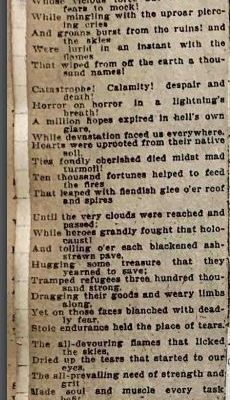 Whose vicious force
fears to mock!
While mingling with the uproar pierc-
ing cries
And groans burst from the ruins! and
the skies
Were lurid in an instant with the
flames
That wiped from off the earth a thou-
sand names!
Catastrophe! Calamity! despair and
death!
Horror on horror in a lightning's
breath!
A million hopes expired in hell's own
glare,
While devastation faced us everywhere.
Hearts were uprooted from their native
soil,
Ties fondly cherished died midst mad
turmoil!
Ten thousand fortunes helped to feed
the fires
That leaped with fiendish glee o'er roof
and spires
Until the very clouds were reached and
passed;
While heroes grandly fought that holo-
caust!
And tolling o'er each blackened ash-
strawn pave,
Hugging some treasure that they
yearned to save;
Tramped refugees three hundred thou-
sand strong,
Dragging their goods and weary limbs
along,
Yet on those faces blanched with dead-
ly fear,
Stoic endurance held the place of tears.
The all-devouring flames that licked
the skies,
Dried up the tears that started to our
eyes.
The all-prevailing need of strength and
grit
Made soul and muscle every task